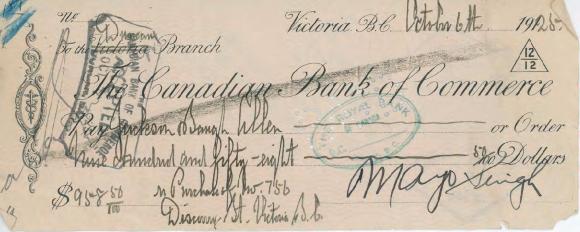 No
Victoria B.C. October 6th 1925
To the Victoria Branch
12
12
The Canadian Bank of Commerce
ROYAL BANK
Pay Jackson Baugh Allen or Order
Nine Hundred and fifty-eight 50/100 Dollars
$958 50/100 Purchase of No. 756
Mayo Singh
Discovery St. Victoria B.C.